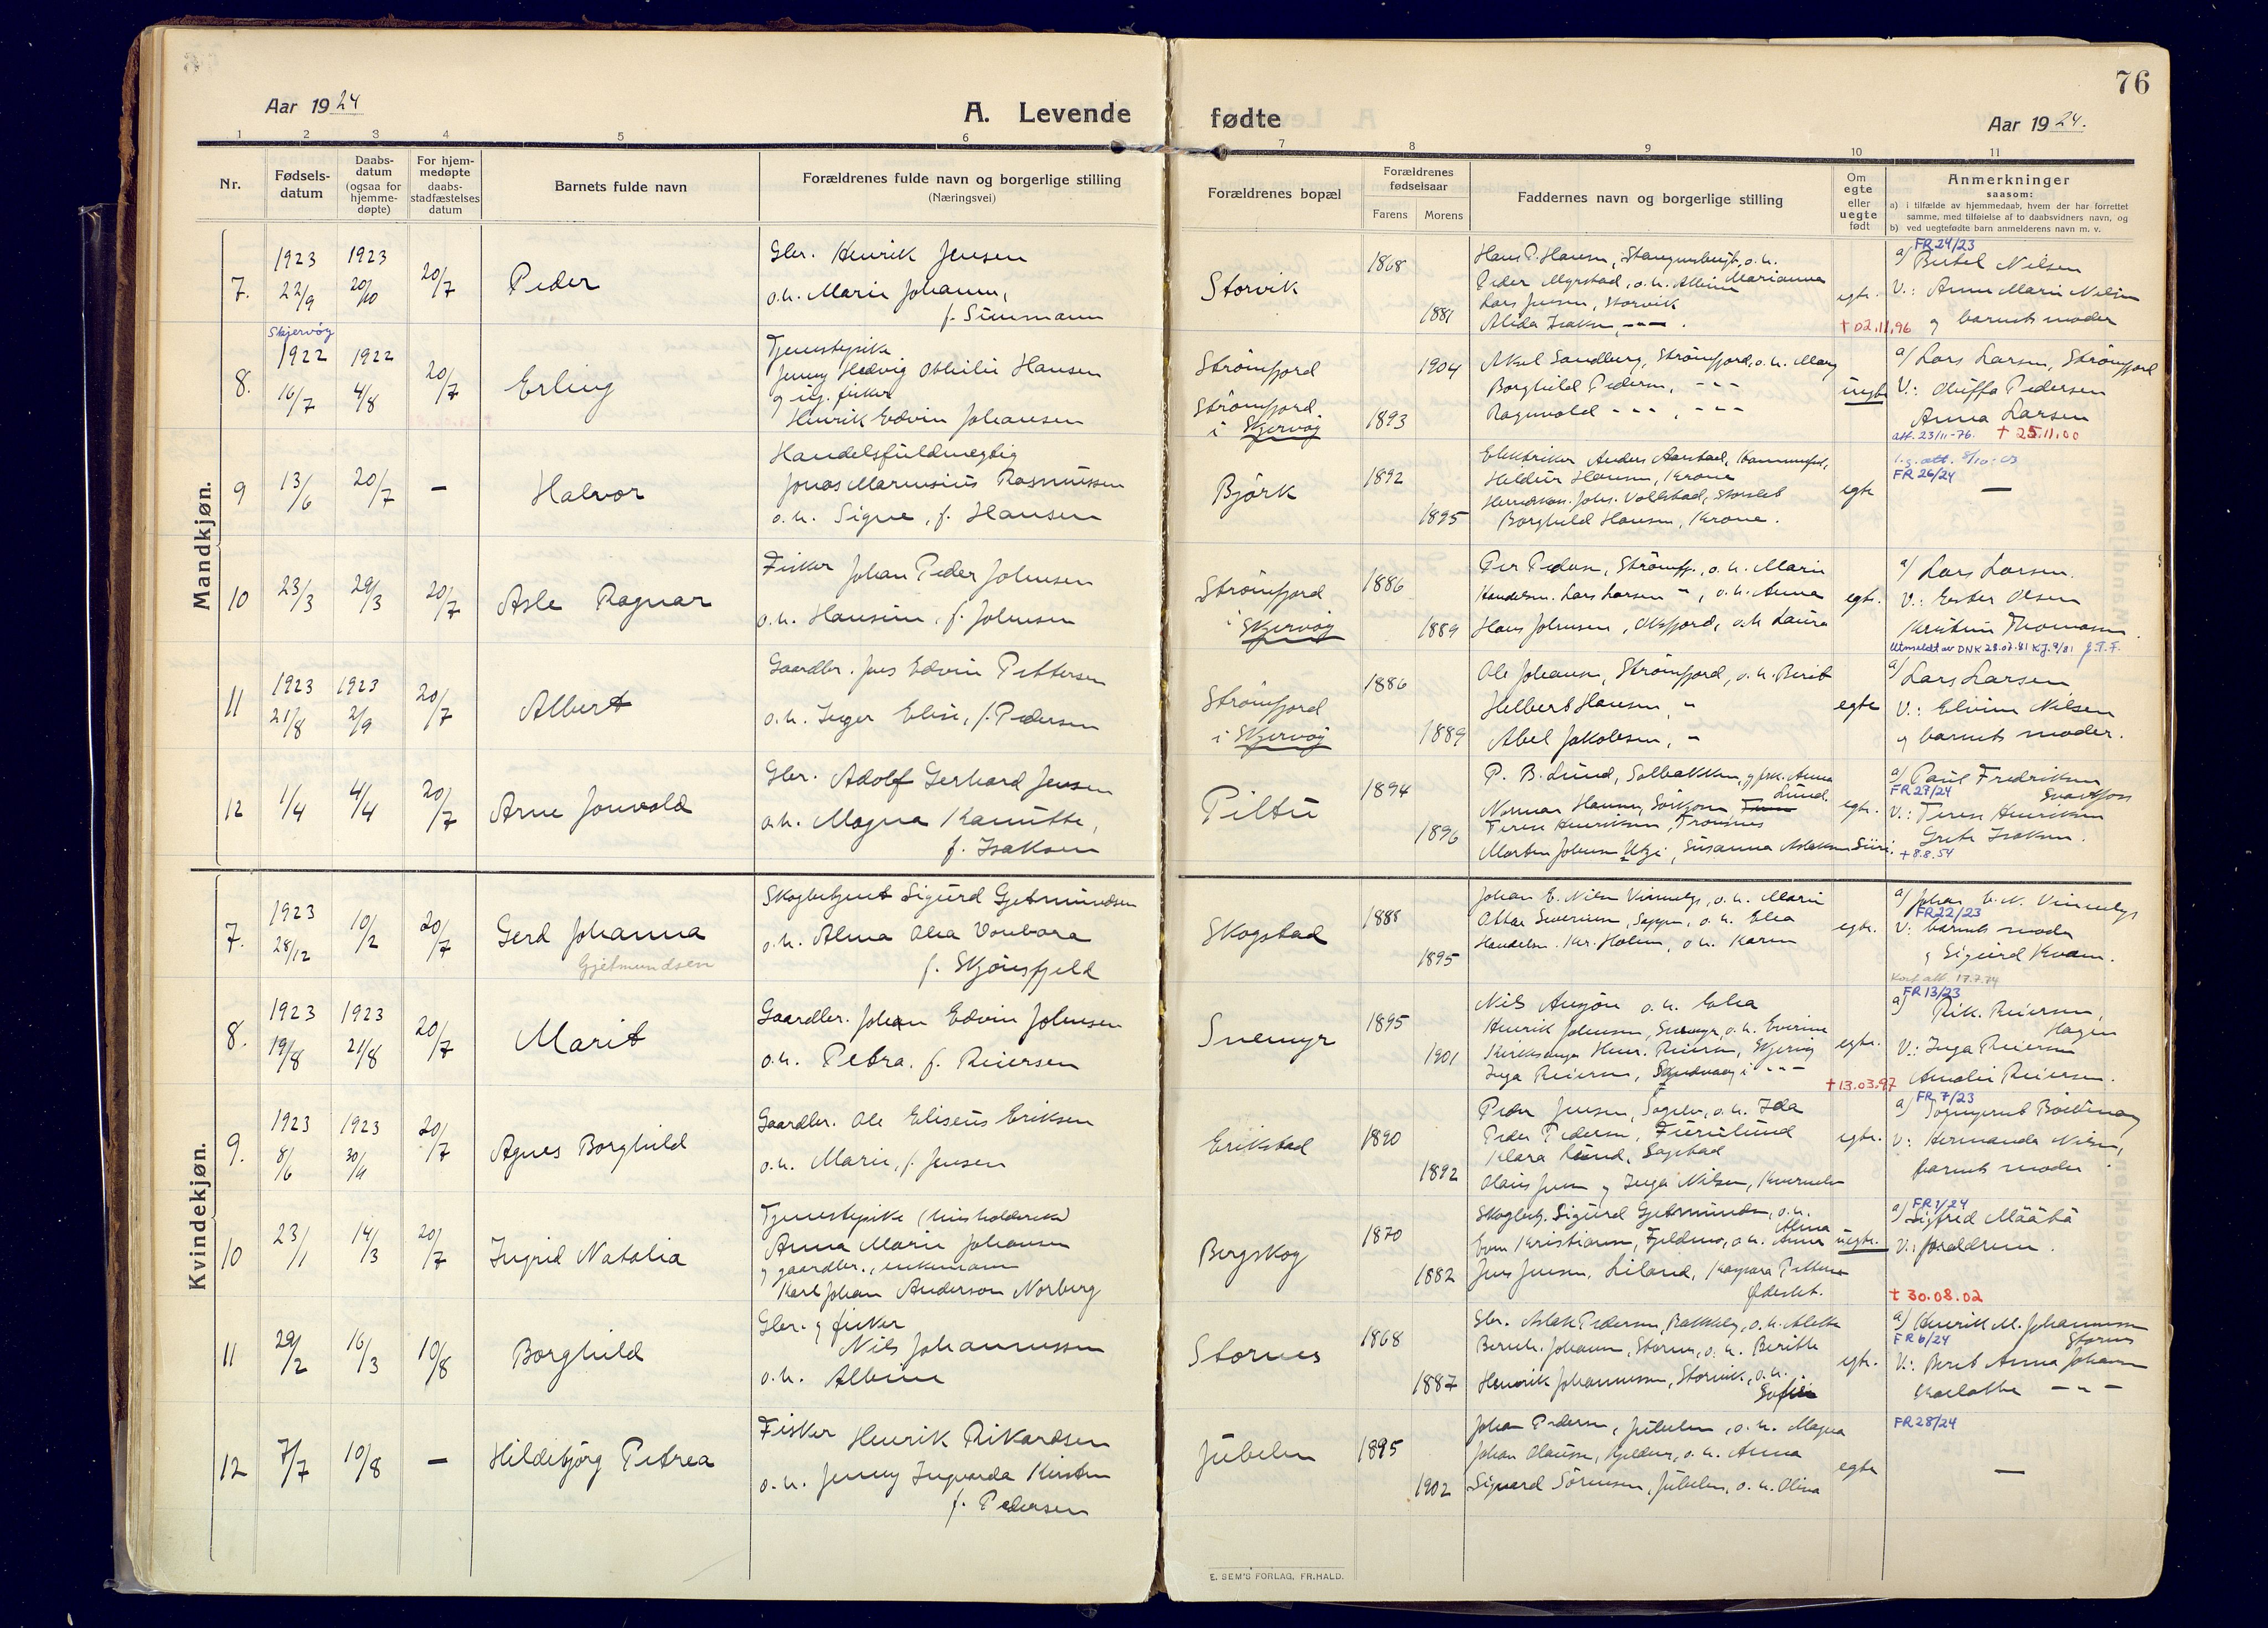 76
Aar 1924
A. Levende
fødte
Aar 1924.
1 2 3 4 5 6 7 8 9 10 11
Nr.
Fødsels-
datum
Daabs-
datum
(ogsaa for
hjemme-
døpte)
For hjem-
medøpte
daabs-
stadfæstelses
datum
Barnets fulde navn
Forældrenes fulde navn og borgerlige stilling
(Næringsvei)
Forældrenes bopæl
Forældrenes
fødselsaar
Farens Morens
Faddernes navn og borgerlige stilling
Om
egte
eller
uegte
født
Anmerkninger
saasom:
a) i tilfælde av hjemmedaab, hvem der har forrettet
samme, med tilføielse af to daabsvidners navn, og
b) ved uegtefødte barn anmelderens navn m. v.
Mandkjøn.
7. 1923 22/9 1923 20/10 20/7 Peder
Gbr. Henrik Jensen
o.h. Marie Johanne,
f. Simmann
Storvik
1868
1881
Hans P. Hansen, o.h.
Peder Myrstad, o.h. Albine Marianna
Lars Jensen, Storvik
Alida Isaksen, -"-.
egte.
† 02.11.96
a/ FR 24/23
Bertel Nilsen
V.: Anne Marie Nilsen
og barnets moder
8. Skjervøy
1922 16/7 1922 4/8 20/7 Erling
Tjenestepike
Jenny Hedvig Othilie Hansen
og ug. fisker
Henrik Edvin Johansen
Strømfjord
Strømfjord
i Skjervøy
1904
1893
Aksel Sandberg, Strømfjord, o.h. Mary
Borghild Pedersen, -"-
Ragnvald -"-, -"-
uegte
a/ Lars Larsen, Strømfjord
V.: Oluffa Pedersen
Anna Larsen
att. 23/11-76. † 25.11.00
9 13/6 20/7 - Halvor
Handelsfuldmegtig
Jonas Marensius Rasmussen
o.h. Signe, f. Hansen
Bjørk
1892
1895
Elektriker Anders Aarstad,
Hildur Hansen, Krone
Johs. Vollstad, Storslet
Borghild Hansen, Krone.
egte
l.g. att. 8/10-03
FR 26/24
-
10 23/3 29/3 20/7 Asle Ragnar
Fisker Johan Peder Johnsen
o.h. Hansine, f. Johnsen
Strømfjord
i Skjervøy
1886
1889
Per Pedersen, Strømfj., o.h. Marie
Handelsm. Lars Larsen -", o.h. Anna
Hans Johnsen, Oksfjord, o.h. Laura
egte.
a/ Lars Larsen.
V.: Ester Olsen
Kristine Thomassen.
Utmeldt av DNK 23.07.81 KJ. 9/81 J.T.F.
11 1923 21/8 1923 2/9 20/7 Albert
Gaardbr. Jens Edvin Pettersen
o.h. Inger Elise, f. Pedersen
Strømfjord
i Skjervøy
1886
1889
Ole Johansen, Strømfjord, o.h. Berit
Helbert Hansen, "
Abel Jakobsen, "
egte
a/ Lars Larsen
V.: Elvine Nilsen
og barnets moder.
12 1/4 4/4 20/7 Arne Jonvald
Gbr. Adolf Gerhard Jensen
o.h. Magna Kamitte,
f. Isaksen
Piltu
1894
1896
P. B. Lund, Solbakken, og frk. Anna
Lund.
Normar Hansen, Sørkjosen
Terese Henriksen, Tromsnes
Morten Johnsen Utzi, Susanna Aslaksen Siiri.
egte.
a/ Paul Fredriksen
FR 27/24 Svartfoss
V.: Terese Henriksen
Grete Isaksen.
† 8.8.54
Kvindekjøn.
7. 1923 28/12 10/2 20/7 Gerd Johanna
Gjetmundsen
Skogbetjent Sigurd Gjetmundsen
o.h. Alma Olea Vonbara
f. Skjønsfjeld
Skogstad
1888
1895
Johan E. Nilsen Vinnelys, o.h. Marie
Ottar Severinsen, Sappen, o.h. Elea
Handelsm. Kr. Holm, o.h. Karen
egte.
a/ Johan E. N. Vinnelys
FR 22/23
V: barnets moder
og Sigurd Kvam.
Konf. att. 17.7.74
8. 1923 19/8 1923 21/8 20/7 Marit
Gaardbr. Johan Edvin Johnsen
o.h. Petra. f. Reiersen
Snemyr
1895
1901
Nils Ansjøn o.h. Elea
Henrik Johnsen, Snemyr, o.h. Everine
Kirkesanger Henr. Reiersen, Skjervøy
Inga Reiersen, -"-
egte.
† 13.03.97
FR 13/23
a/ Rik. Reiersen,
Hagen
V.: Inga Reiersen
Amalie Reiersen.
9. 1923 8/6 1923 30/9 20/7 Agnes Borghild
Gaardbr. Ole Eliseus Eriksen
o.h. Marie, f. Jensen
Erikstad
1890
1892
Peder Jensen, Sagelv, o.h. Ida
Peder Pedersen, Furulund
Klara Lund, Sagstad
Olaus Jensen og Inga Nilsen, Kvernelv
egte.
FR 7/23
a/
V: Hermanda Nilsen,
barnets moder.
10 23/1 14/3 20/7 Ingrid Natalia
Tjenestepike (husholderske)
Anna Marie Johansen
og gaardbr., enkemann
Karl Johan Anderson Norberg
Bergskog
1870
1882
Skogbetj. Sigurd Gjetmundsen, o.h.
Alma
Even Kristiansen, Fjeldmo, o.h. Anna
Jens Jensen, Liland, Kaspara Pettersen
Øderslet.
uegte.
FR 1/24
a/ Sigfred Määtä
V.: foreldrene.
† 30.08.02
11 29/2 16/3 10/8 Borghild
Gbr. og fisker
Nils Johannessen
o.h. Albine
Stornes
1868
1887
Gbr. Aslak Pedersen, Bakkeby, o.h. Alette
Bernh. Johansen, Stornes, o.h. Berithe
Henrik Johannessen, Storvik, o.h.
Sofie
egte.
a/ Henrik M. Johannessen
FR 6/24 Stornes
V.: Berit Anna Johansen
Karlotte -"-
12 7/7 10/8 - Hildebjørg Petrea
Fisker Henrik Rikardsen
o.h. Jenny Ingvarda Kirsten
f. Pedersen
Jubelen
1895
1902
Johan Pedersen, Jubelen, o.h. Magna
Johan Olaussen, Kjelderen, o.h. Anna
Sigvard Sørensen, Jubelen, o.h. Oliva
egte
FR 28/24
-
E. SEM'S FORLAG, FR.HALD.